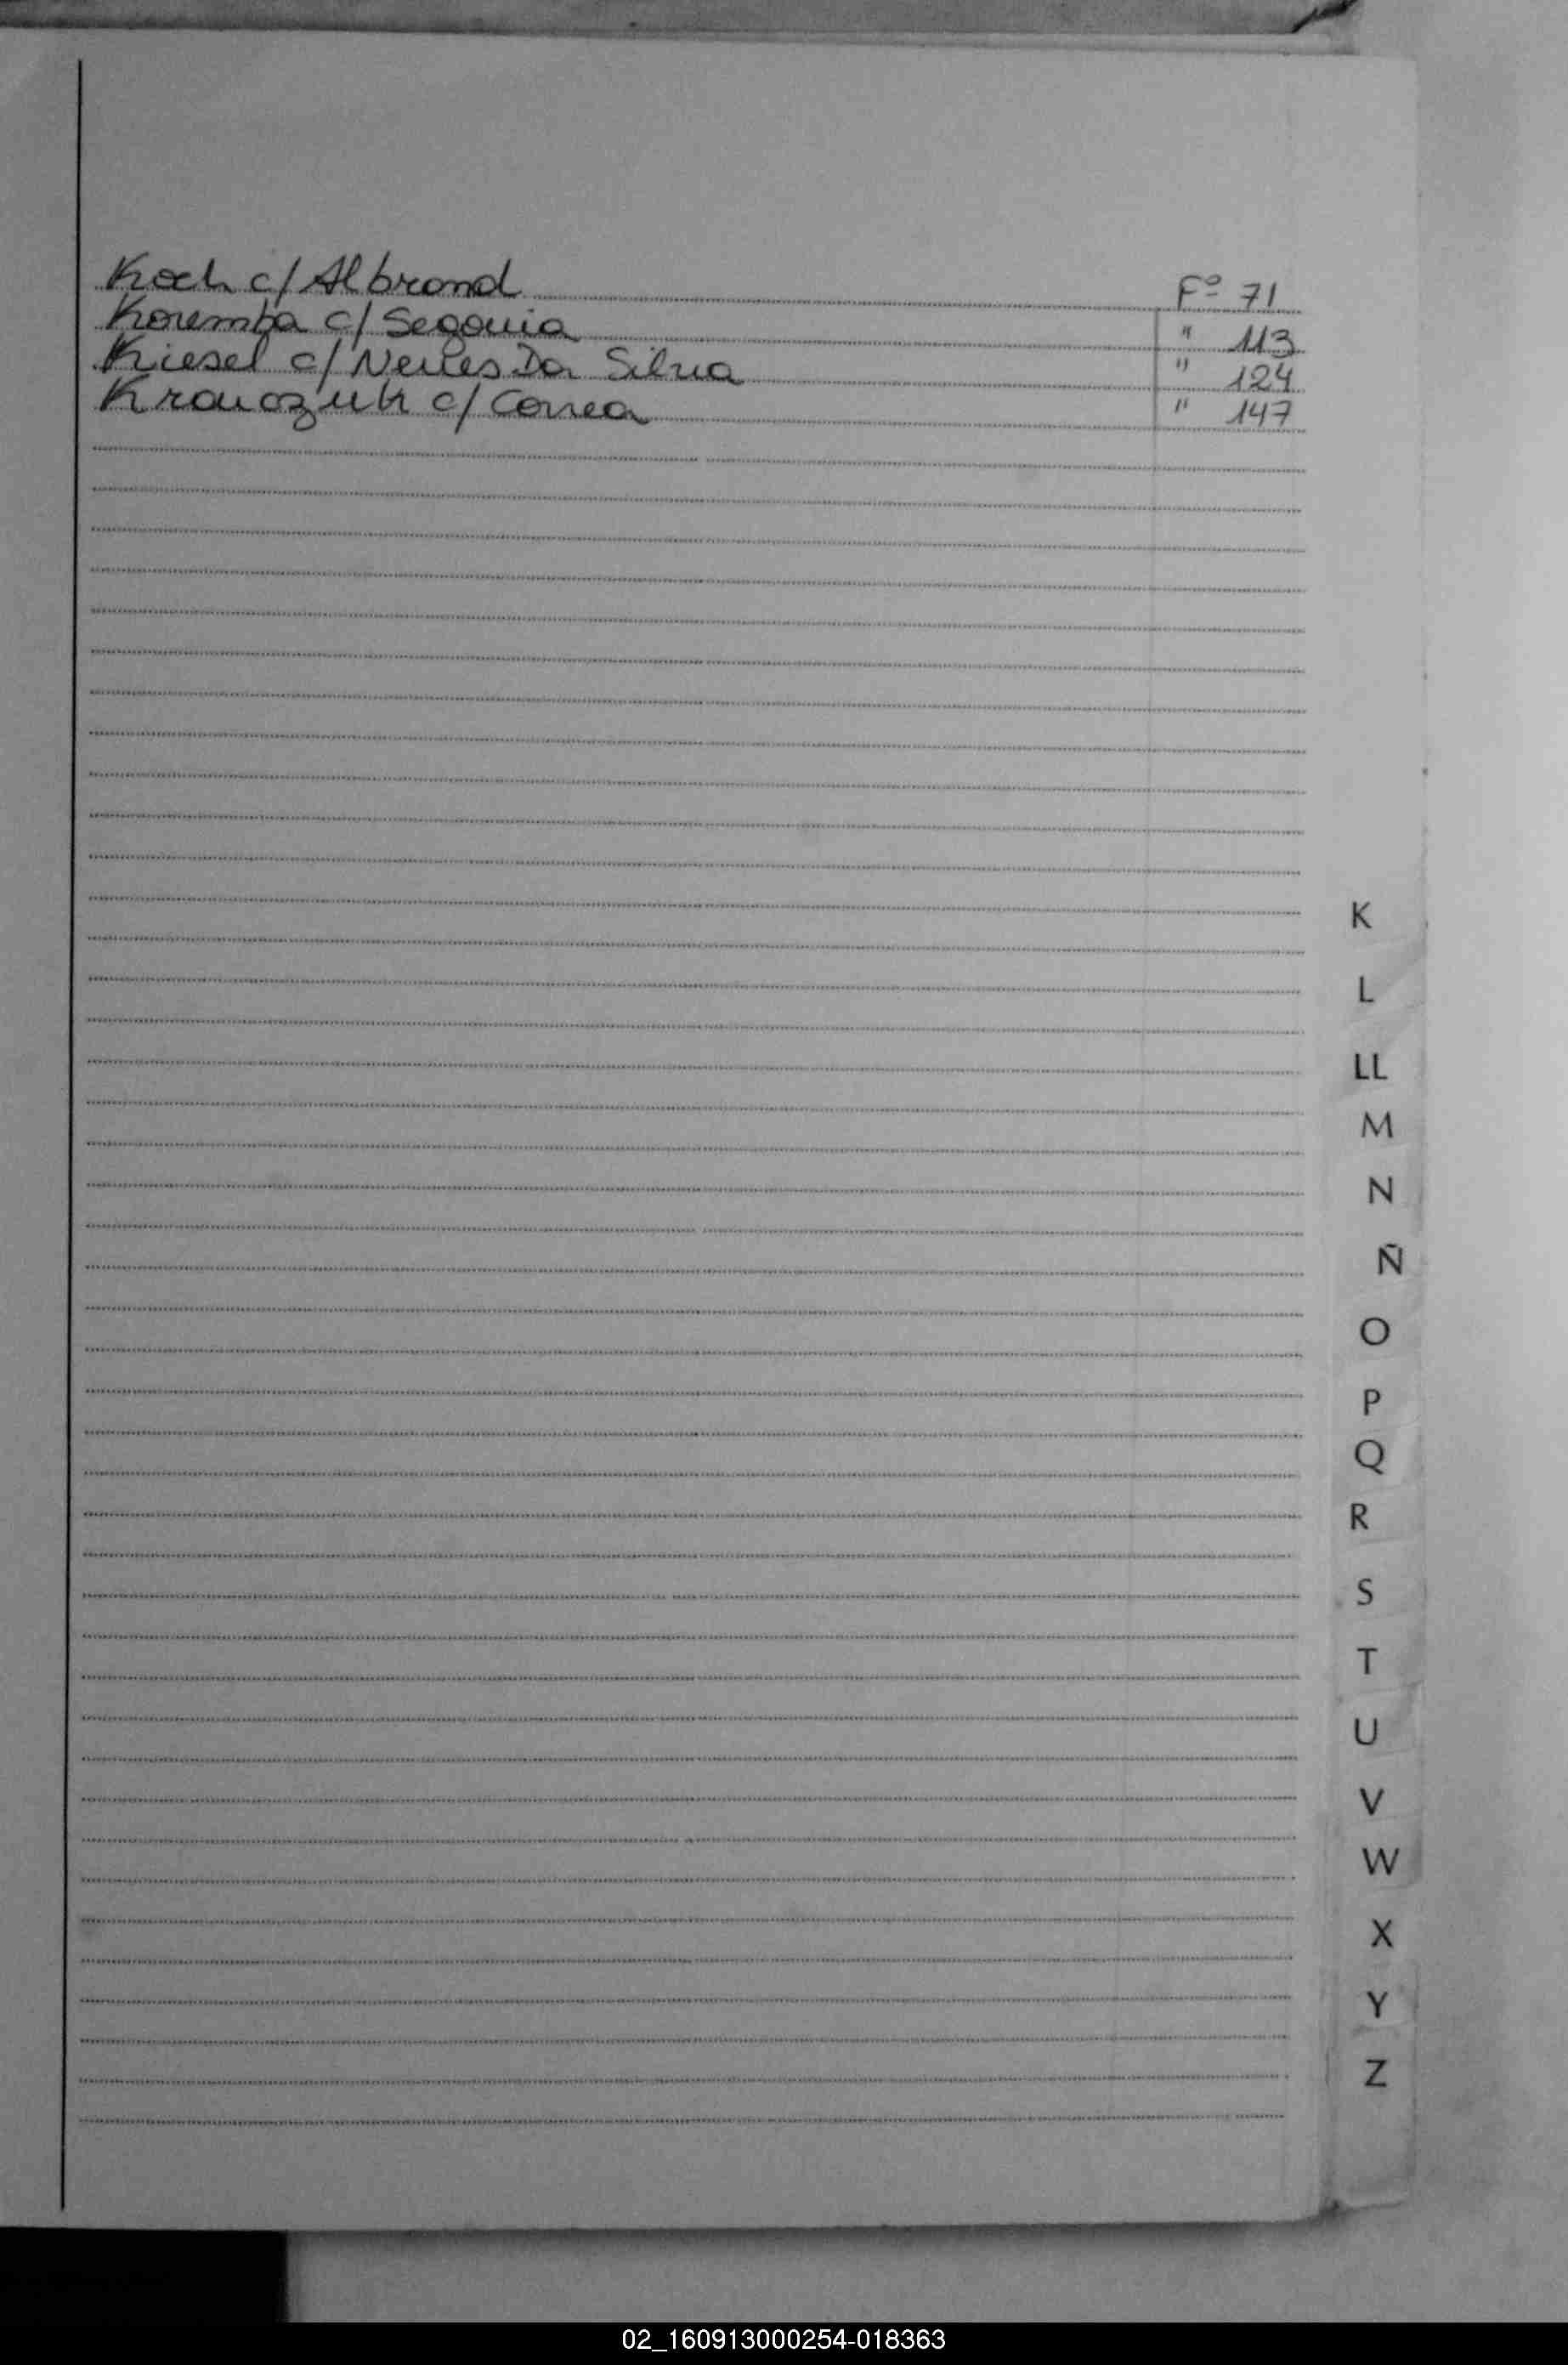 Koch c/ Albrond Fº 71
Koremba c/ Segovia " 113
Kiesel c/ Neiles Da Silva " 124
Kravozuk c/ Correa " 147
K
L
LL
M
N
Ñ
O
P
Q
R
S
T
U
V
W
X
Y
Z
02_160913000254-018363